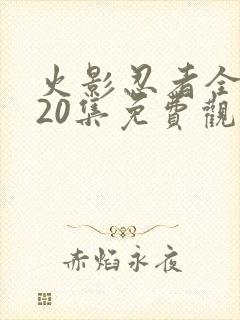 火影忍者全
20集免費觀
赤焰永夜